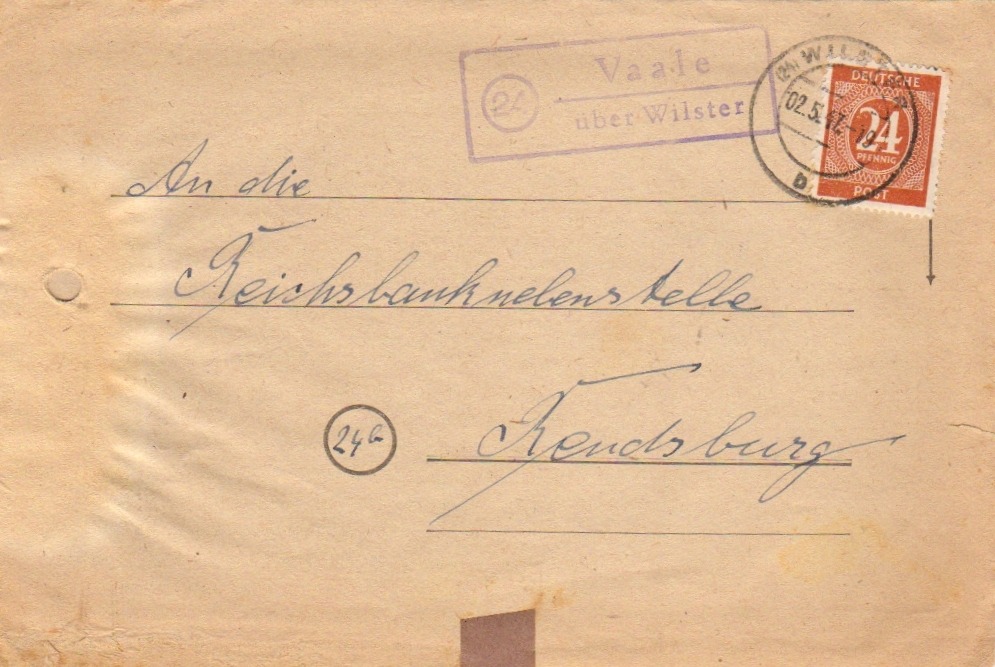 Vaale
24
über Wilster
(24) WILSTER
02.5.47.-19
b
DEUTSCHE
24
PFENNIG
POST
An die
Reichsbanknebenstelle
24b
Rendsburg